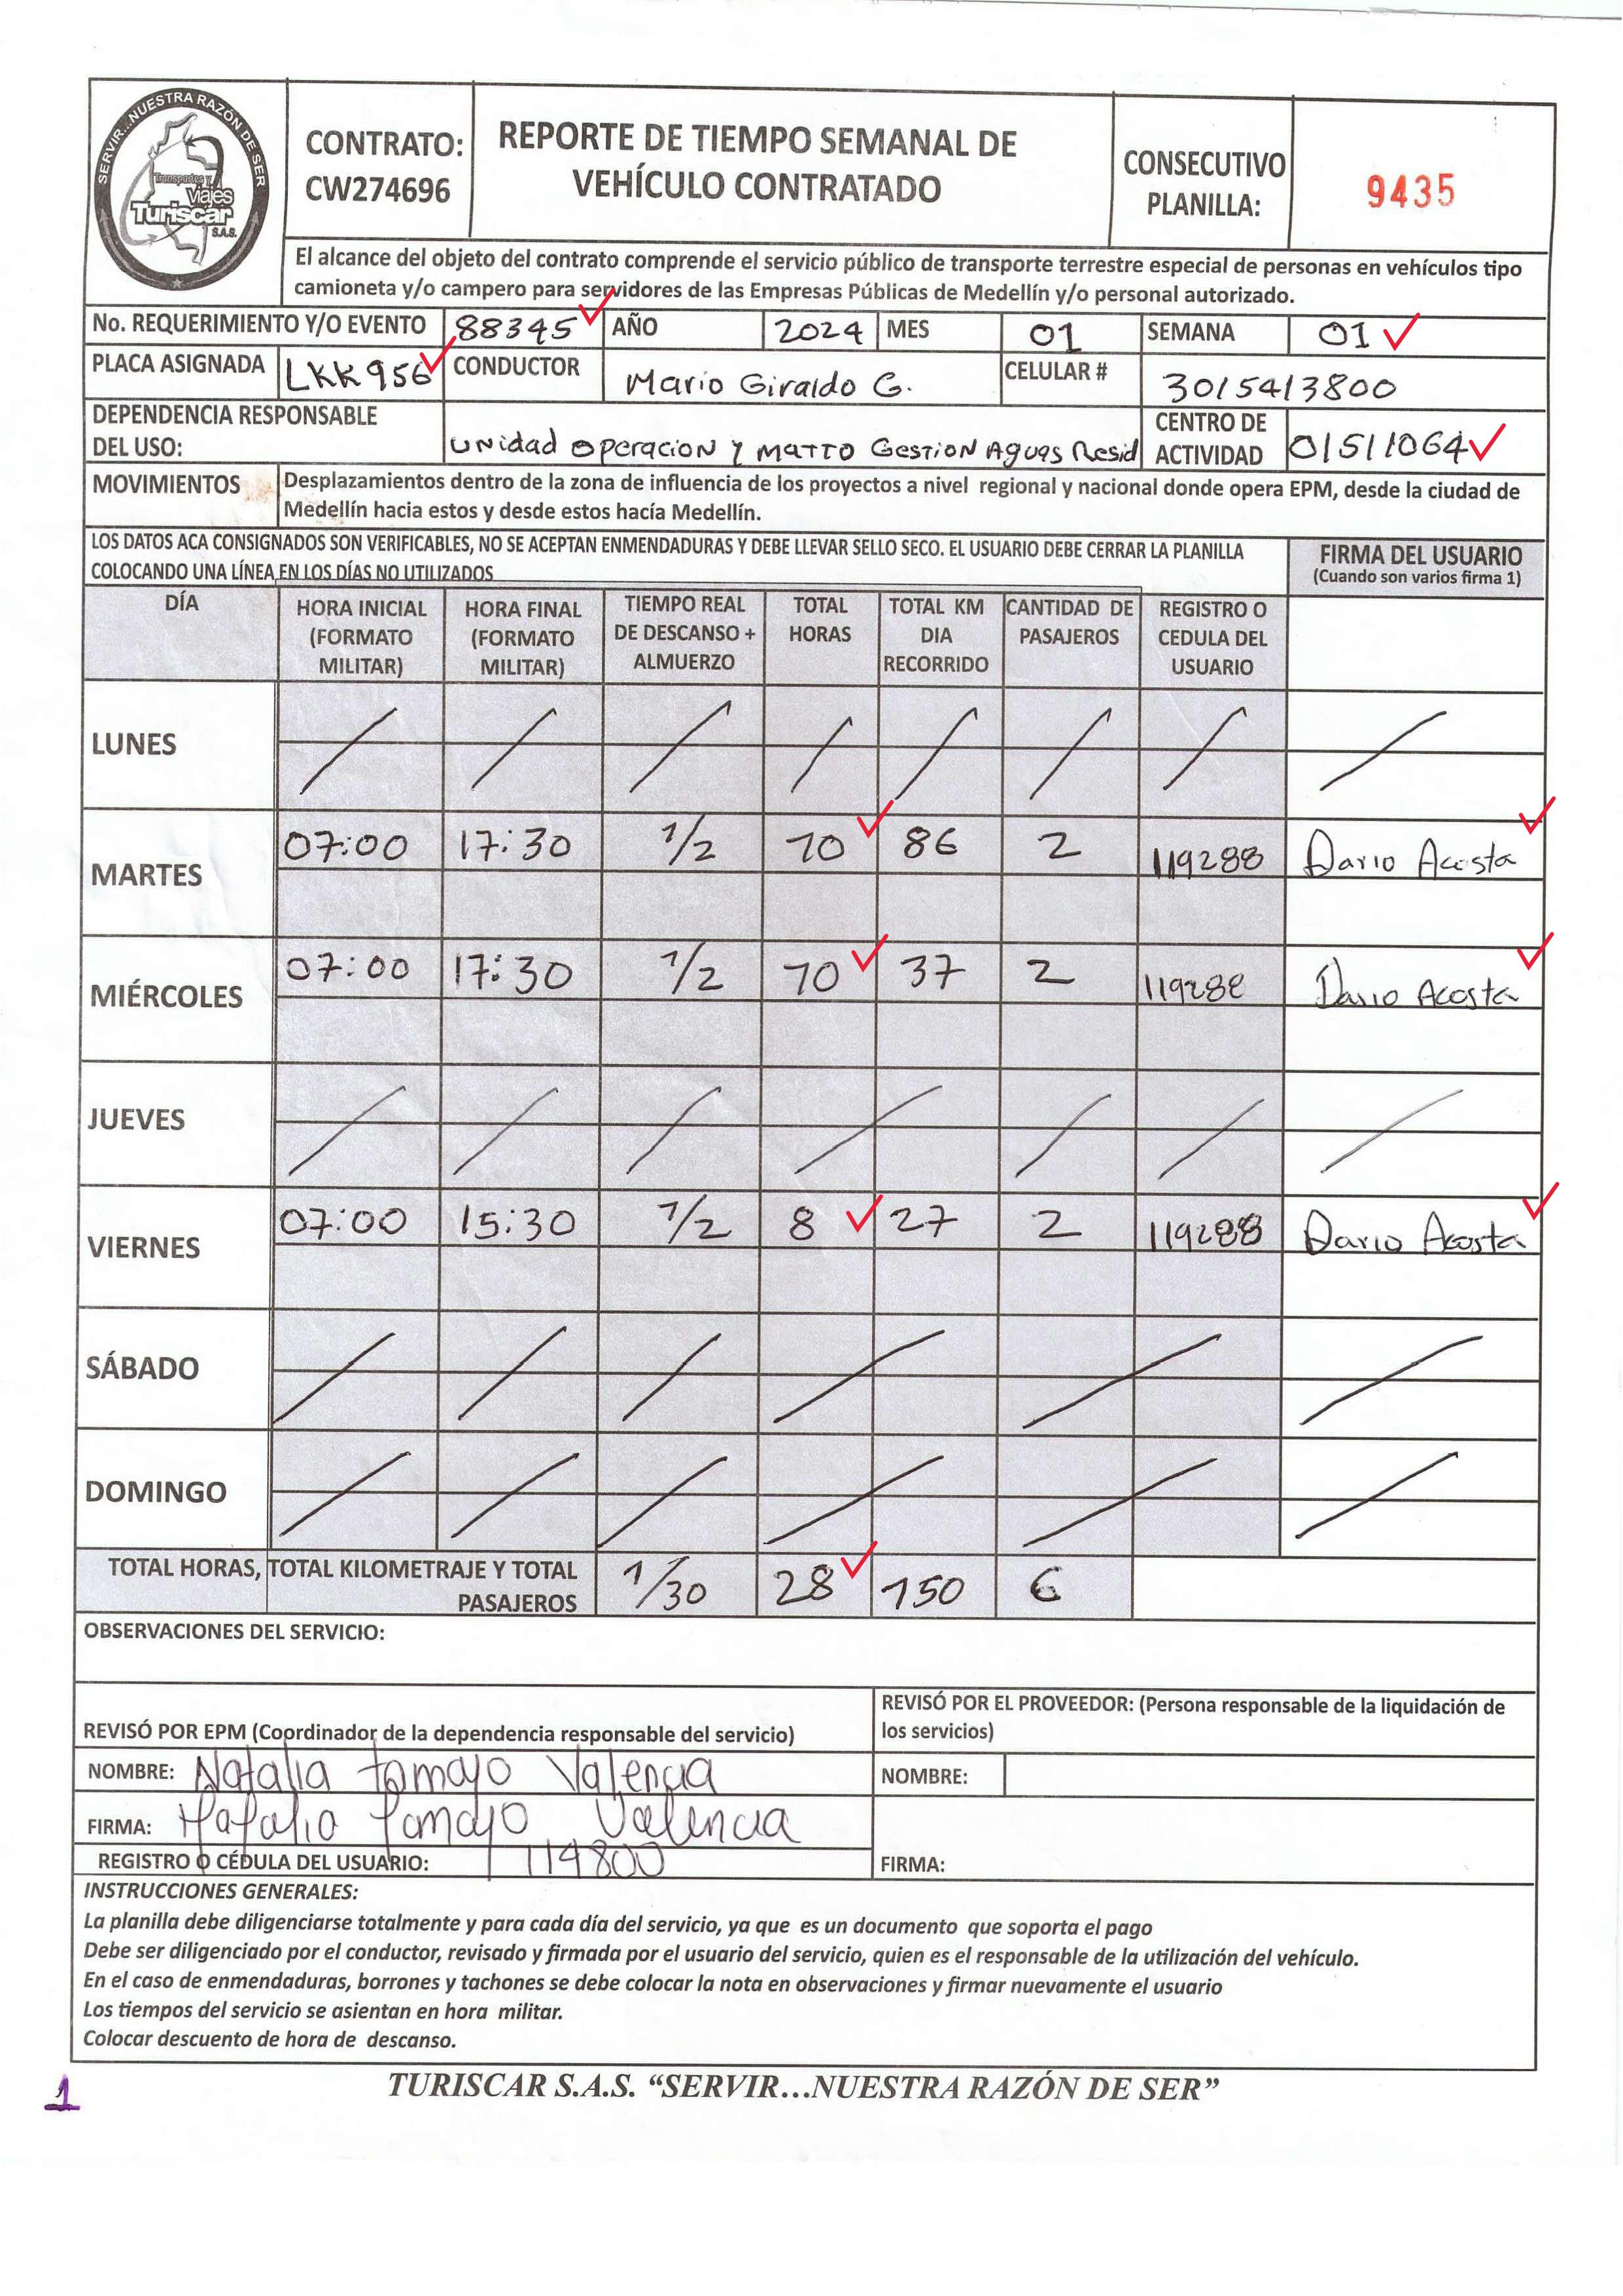 SERVIR...NUESTRA RAZÓN DE SER
Transportes y
Viajes
Turiscar
S.A.S.
CONTRATO:
CW274696
REPORTE DE TIEMPO SEMANAL DE
VEHÍCULO CONTRATADO
CONSECUTIVO
PLANILLA:
9435
El alcance del objeto del contrato comprende el servicio público de transporte terrestre especial de personas en vehículos tipo
camioneta y/o campero para servidores de las Empresas Públicas de Medellín y/o personal autorizado.
No. REQUERIMIENTO Y/O EVENTO 88345 AÑO 2024 MES 01 SEMANA 01
PLACA ASIGNADA LKK956 CONDUCTOR Mario Giraldo G. CELULAR # 3015413800
DEPENDENCIA RESPONSABLE
DEL USO: Unidad Operacion y Matto Gestion Aguas Resid
CENTRO DE
ACTIVIDAD 01511064
MOVIMIENTOS Desplazamientos dentro de la zona de influencia de los proyectos a nivel regional y nacional donde opera EPM, desde la ciudad de
Medellín hacia estos y desde estos hacía Medellín.
LOS DATOS ACA CONSIGNADOS SON VERIFICABLES, NO SE ACEPTAN ENMENDADURAS Y DEBE LLEVAR SELLO SECO. EL USUARIO DEBE CERRAR LA PLANILLA
COLOCANDO UNA LÍNEA EN LOS DÍAS NO UTILIZADOS
FIRMA DEL USUARIO
(Cuando son varios firma 1)
DÍA
HORA INICIAL
(FORMATO
MILITAR)
HORA FINAL
(FORMATO
MILITAR)
TIEMPO REAL
DE DESCANSO +
ALMUERZO
TOTAL
HORAS
TOTAL KM
DIA
RECORRIDO
CANTIDAD DE
PASAJEROS
REGISTRO O
CEDULA DEL
USUARIO
LUNES
MARTES 07:00 17:30 1/2 10 86 2 119288 Dario Acosta
MIÉRCOLES 07:00 17:30 1/2 10 37 2 119288 Dario Acosta
JUEVES
VIERNES 07:00 15:30 1/2 8 27 2 119288 Dario Acosta
SÁBADO
DOMINGO
TOTAL HORAS, TOTAL KILOMETRAJE Y TOTAL
PASAJEROS 1/30 28 150 6
OBSERVACIONES DEL SERVICIO:
REVISÓ POR EPM (Coordinador de la dependencia responsable del servicio)
REVISÓ POR EL PROVEEDOR: (Persona responsable de la liquidación de
los servicios)
NOMBRE: Natalia tamayo Valencia
NOMBRE:
FIRMA: Natalia Tamayo Valencia
REGISTRO O CÉDULA DEL USUARIO: 119800
FIRMA:
INSTRUCCIONES GENERALES:
La planilla debe diligenciarse totalmente y para cada día del servicio, ya que es un documento que soporta el pago
Debe ser diligenciado por el conductor, revisado y firmada por el usuario del servicio, quien es el responsable de la utilización del vehículo.
En el caso de enmendaduras, borrones y tachones se debe colocar la nota en observaciones y firmar nuevamente el usuario
Los tiempos del servicio se asientan en hora militar.
Colocar descuento de hora de descanso.
1
TURISCAR S.A.S. “SERVIR...NUESTRA RAZÓN DE SER”